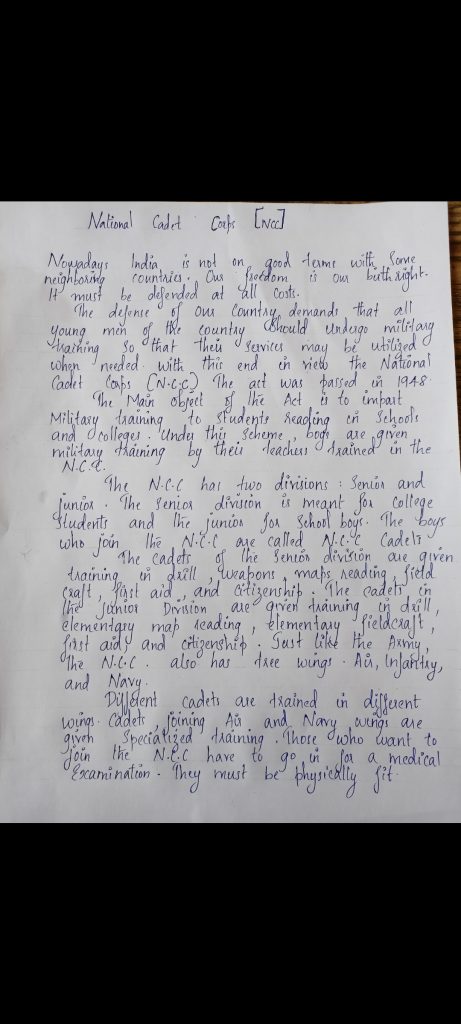 National Cadet Corps [NCC]
Nowadays India is not on good terms with Some
neighboring countries. Our freedom is our birthright.
It must be defended at all costs.
The defense of Our Country demands that all
young men of the country Should Undergo military
training so that their services may be utilized
when needed. with this end in view the National
Cadet Corps (N.C.C) The act was passed in 1948.
The Main object of the Act is to impart
Military training to students reading in Schools
and colleges. Under this Scheme, boys are given
military training by their teachers trained in the
N.C.C.
The N.C.C has two divisions: Senior and
junior. The Senior division is meant for college
students and the junior for School boys. The boys
who join the N.C.C are called N.C.C Cadets
The cadets of the Senior division are given
training in drill, weapons, maps reading, field
craft, first aid, and citizenship. The cadets in
the Junior Division are given training in drill,
elementary map reading, elementary fieldcraft,
first aid, and citizenship. Just like the Army,
the N.C.C. also has tree wings. Air, Infantry,
and Navy.
Different cadets are trained in different
wings. Cadets joining Air and Navy wings are
given Specialized training. Those who want to
join the N.C.C have to go in for a medical
Examination. They must be physically fit.